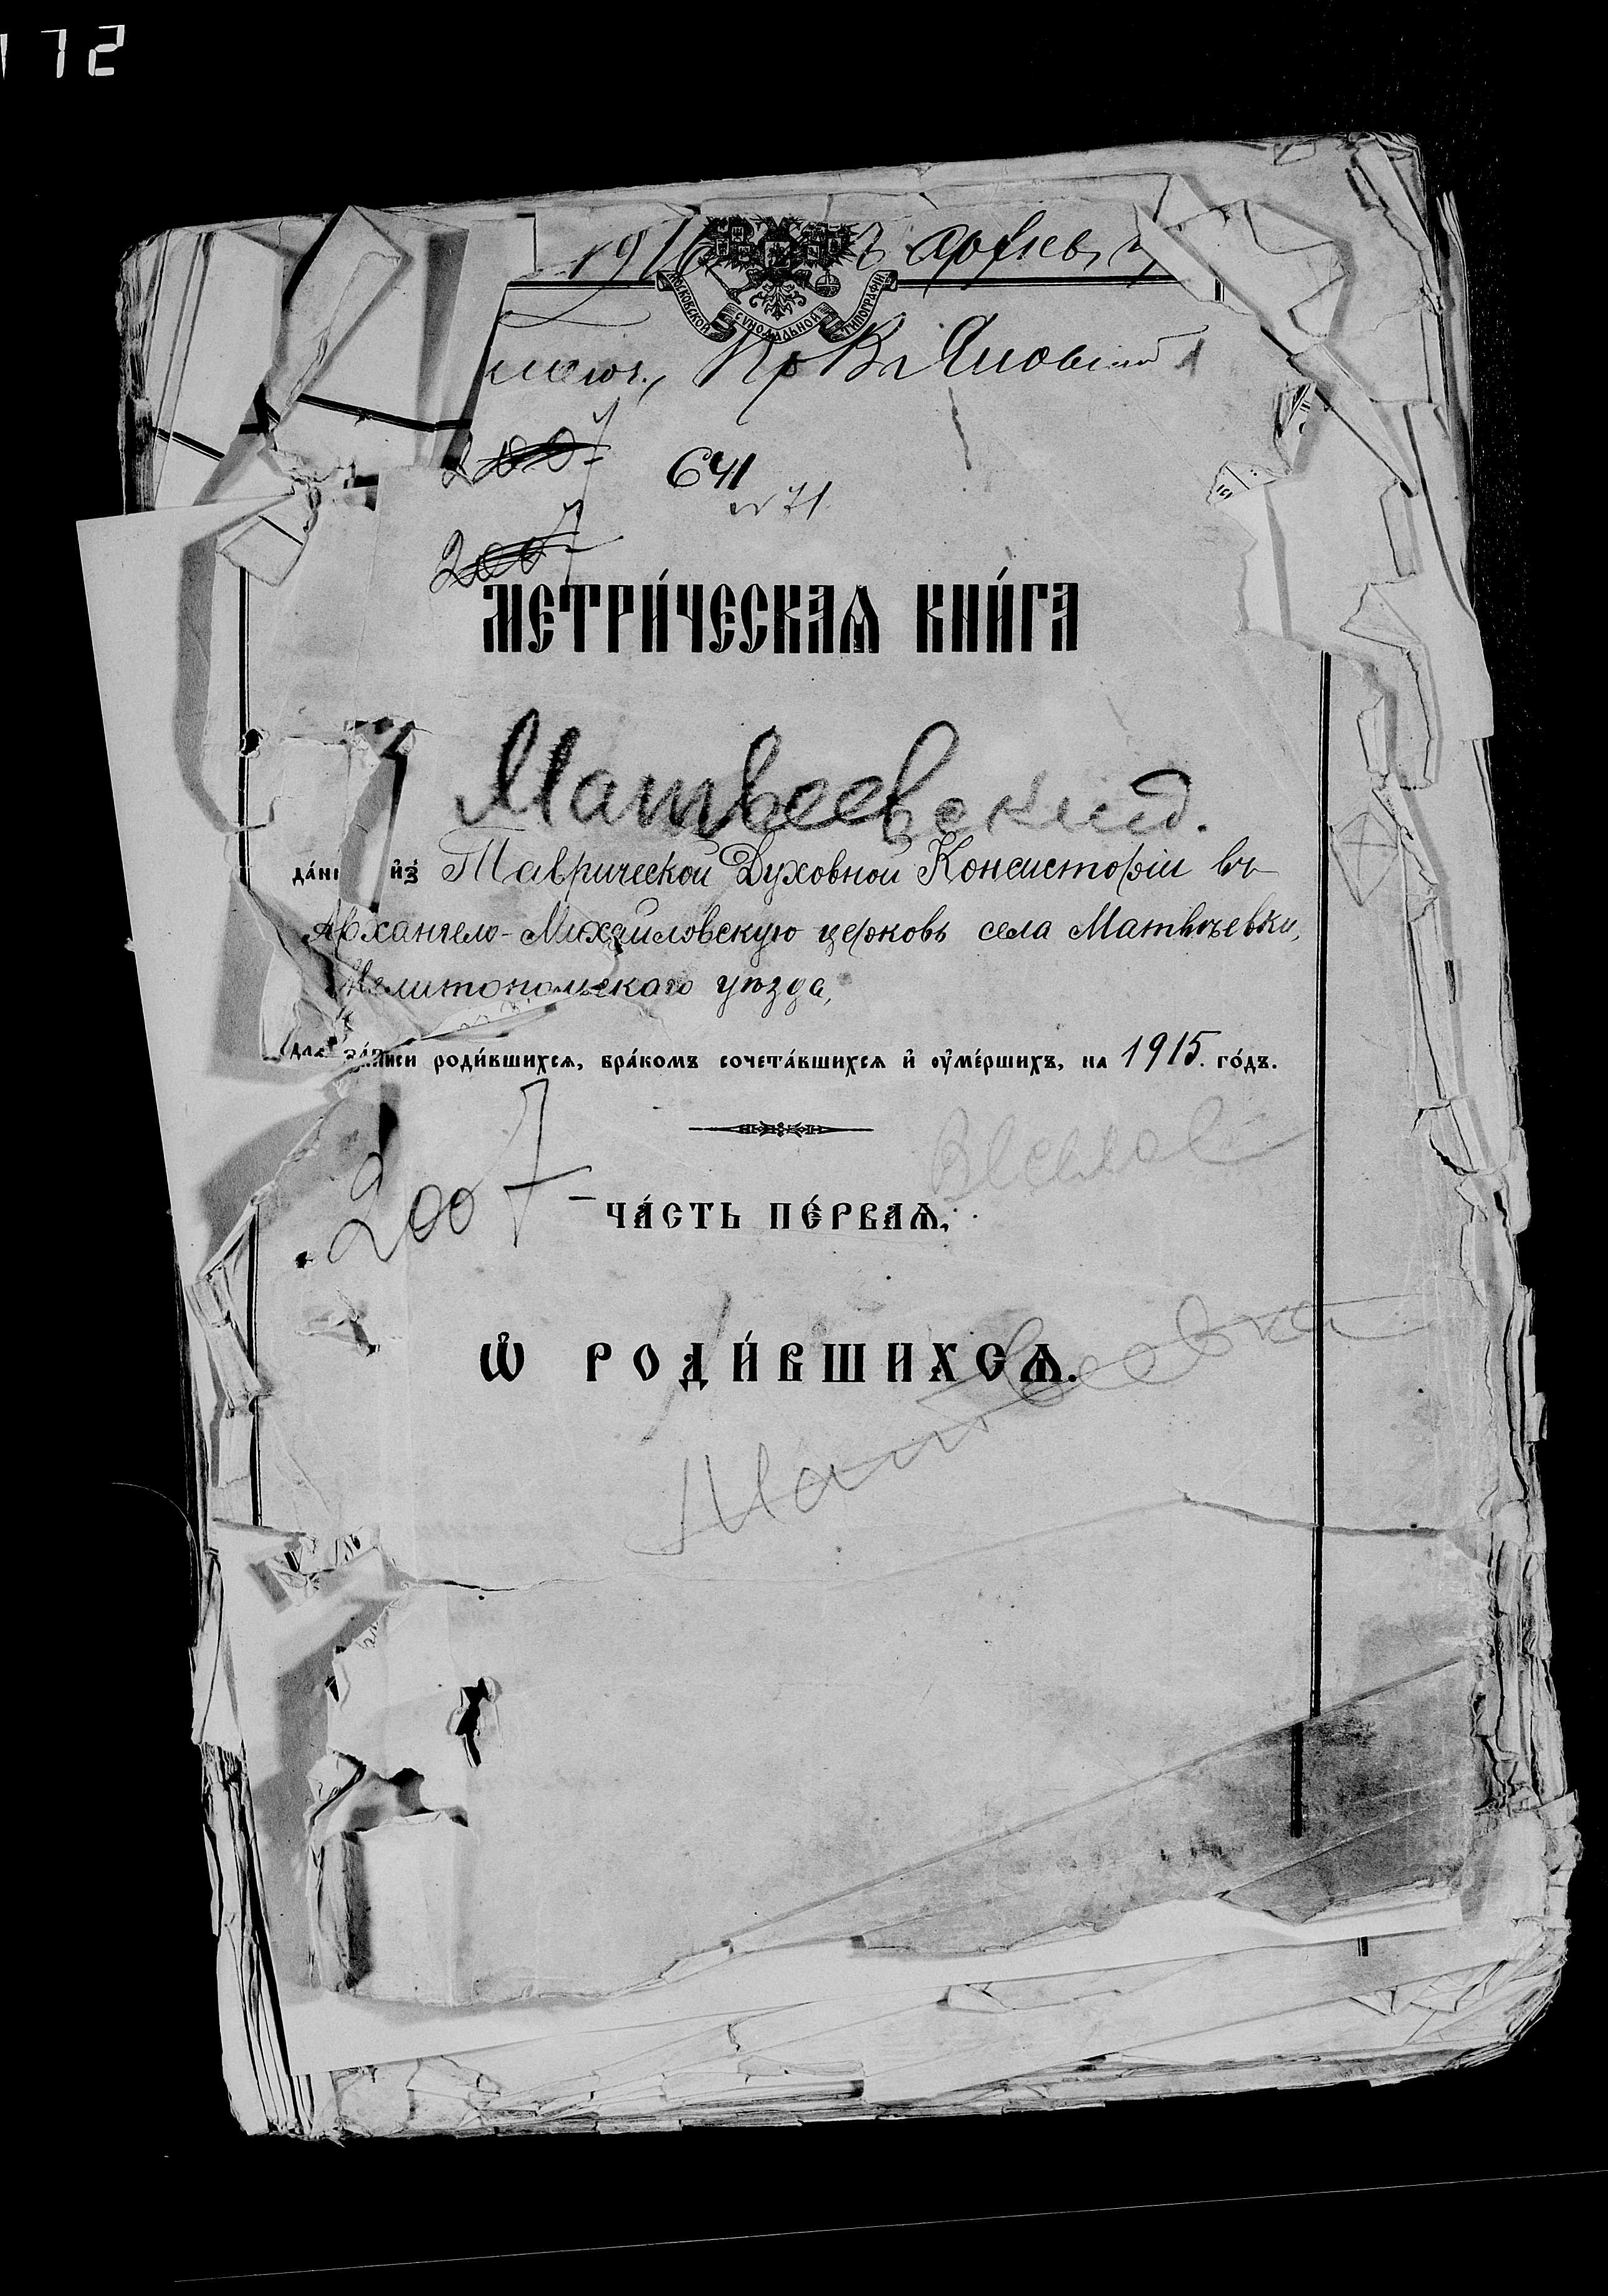 172
МОСКОВСКОЙ СУНОДАЛЬНОЙ ТИПОГРАФІИ
2007
641
№ 71
2007
МЕТРИ́ЧЕСКАѦ КНИ́ГА
Матвеевский.
и҆з̾ Таврической Духовной Консисторіи въ
Архангело-Михайловскую церковь села Матвѣевки,
Мелитопольскаго уѣзда,
за́писи роди́вшихсѧ, бра́комъ сочета́вшихсѧ и҆ ᲂу҆ме́ршихъ, на 1915. го́дъ.
2007
ЧА́СТЬ ПЕ́РВАѦ,
Ѽ РОДИ́ВШИХСѦ.
Матвеевка